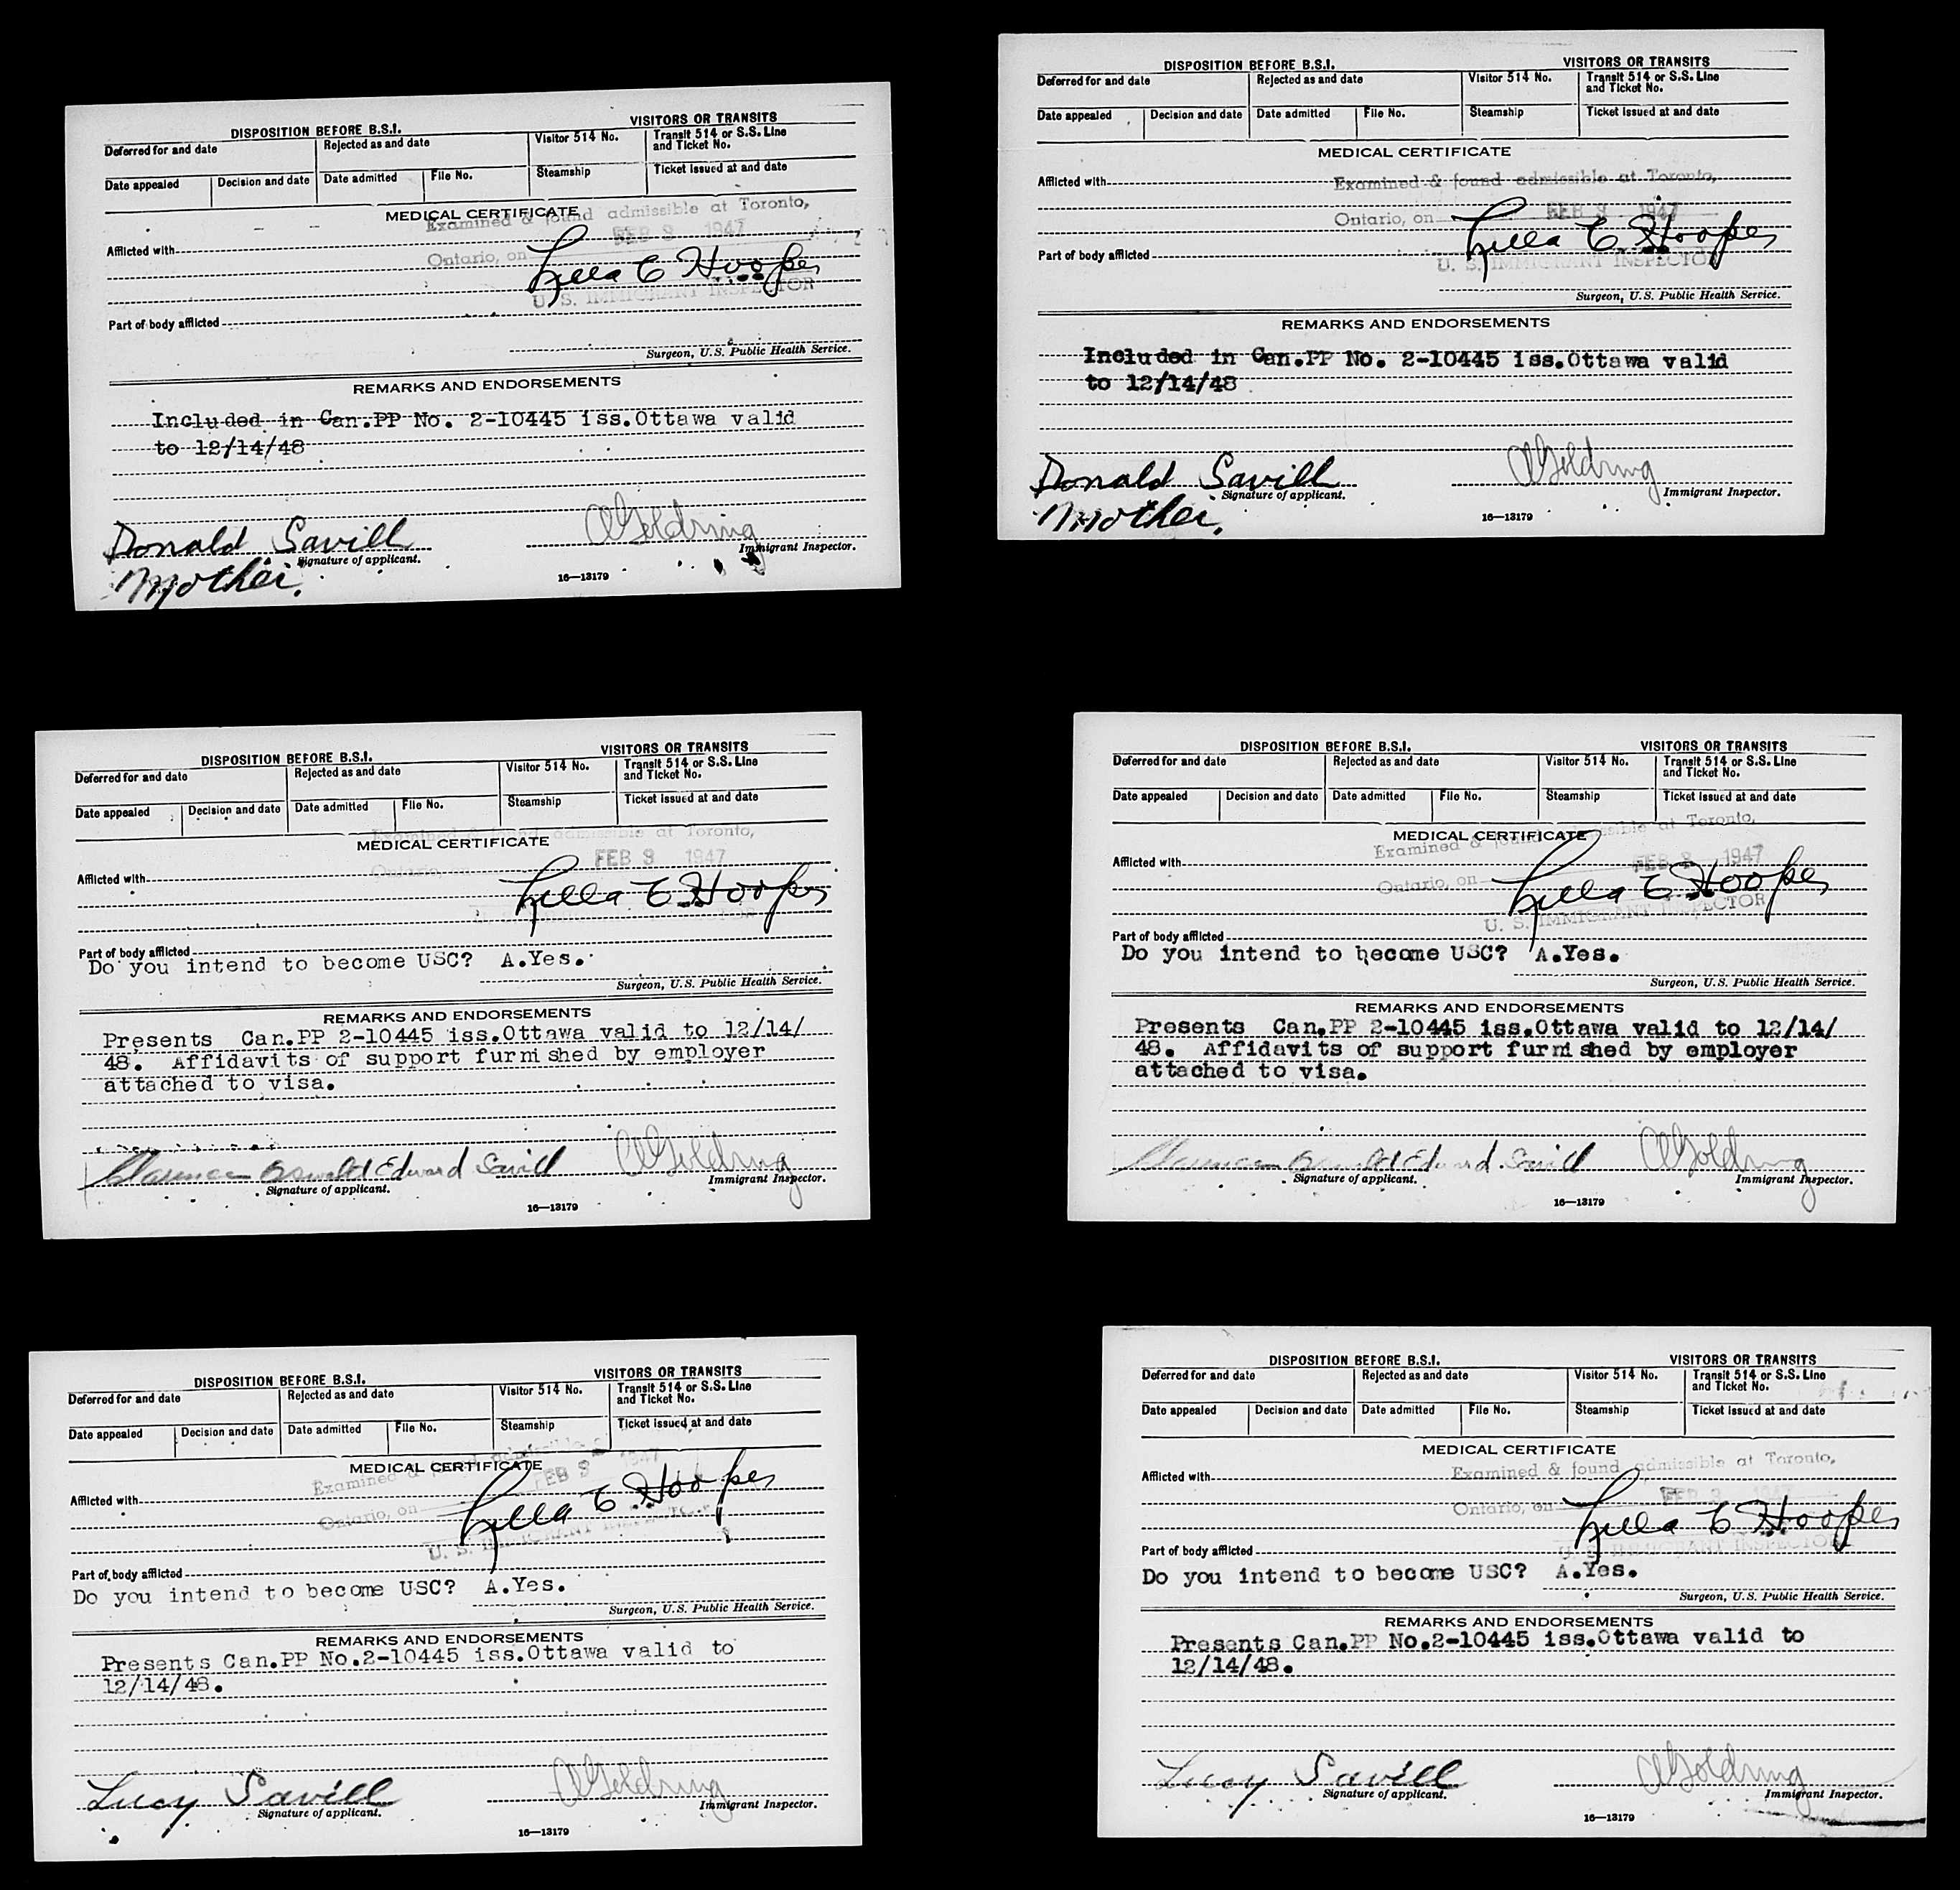 DISPOSITION BEFORE B.S.I. VISITORS OR TRANSITS
Deferred for and date Rejected as and date Visitor 514 No. Transit 514 or S.S. Line and Ticket No.
Date appealed Decision and date Date admitted File No. Steamship Ticket issued at and date
MEDICAL CERTIFICATE
Examined & found admissible at Toronto,
FEB 3 1947
Afflicted with
Ontario, on
Lella E Hooper
U. S. IMMIGRANT INSPECTOR
Part of body afflicted
Surgeon, U.S. Public Health Service.
REMARKS AND ENDORSEMENTS
Included in Can.PP No. 2-10445 iss.Ottawa valid
to 12/14/48
Donald Savill
Goldring
Signature of applicant. Immigrant Inspector.
Mother.
16—13179
DISPOSITION BEFORE B.S.I. VISITORS OR TRANSITS
Deferred for and date Rejected as and date Visitor 514 No. Transit 514 or S.S. Line and Ticket No.
Date appealed Decision and date Date admitted File No. Steamship Ticket issued at and date
MEDICAL CERTIFICATE
Afflicted with Examined & found admissible at Toronto,
Ontario, on FEB 3 1947
Lella E Hooper
Part of body afflicted
U. S. IMMIGRANT INSPECTOR
Surgeon, U.S. Public Health Service.
REMARKS AND ENDORSEMENTS
Included in Can.PP No. 2-10445 iss.Ottawa valid
to 12/14/48
Donald Savill
Goldring
Signature of applicant. Immigrant Inspector.
Mother.
16—13179
DISPOSITION BEFORE B.S.I. VISITORS OR TRANSITS
Deferred for and date Rejected as and date Visitor 514 No. Transit 514 or S.S. Line and Ticket No.
Date appealed Decision and date Date admitted File No. Steamship Ticket issued at and date
Examined & found admissible at Toronto,
MEDICAL CERTIFICATE
FEB 3 1947
Afflicted with Ontario, on
Lella E Hooper
Part of body afflicted
Do you intend to become USC? A.Yes.
Surgeon, U.S. Public Health Service.
REMARKS AND ENDORSEMENTS
Presents Can.PP 2-10445 iss.Ottawa valid to 12/14/
48. Affidavits of support furnished by employer
attached to visa.
Clarence Oswald Edward Savill Goldring
Signature of applicant. Immigrant Inspector.
16—13179
DISPOSITION BEFORE B.S.I. VISITORS OR TRANSITS
Deferred for and date Rejected as and date Visitor 514 No. Transit 514 or S.S. Line and Ticket No.
Date appealed Decision and date Date admitted File No. Steamship Ticket issued at and date
MEDICAL CERTIFICATE
Examined & found admissible at Toronto,
Afflicted with FEB 3 1947
Ontario, on
Lella E Hooper
U. S. IMMIGRANT INSPECTOR
Part of body afflicted
Do you intend to become USC? A.Yes.
Surgeon, U.S. Public Health Service.
REMARKS AND ENDORSEMENTS
Presents Can.PP 2-10445 iss.Ottawa valid to 12/14/
48. Affidavits of support furnished by employer
attached to visa.
Clarence Oswald Edward Savill Goldring
Signature of applicant. Immigrant Inspector.
16—13179
DISPOSITION BEFORE B.S.I. VISITORS OR TRANSITS
Deferred for and date Rejected as and date Visitor 514 No. Transit 514 or S.S. Line and Ticket No.
Date appealed Decision and date Date admitted File No. Steamship Ticket issued at and date
MEDICAL CERTIFICATE
Examined & found admissible
FEB 3 1947
Afflicted with
Ontario, on
Lella E Hooper
U. S. IMMIGRANT INSPECTOR
Part of body afflicted
Do you intend to become USC? A.Yes.
Surgeon, U.S. Public Health Service.
REMARKS AND ENDORSEMENTS
Presents Can.PP No.2-10445 iss.Ottawa valid to
12/14/48.
Lucy Savill Goldring
Signature of applicant. Immigrant Inspector.
16—13179
DISPOSITION BEFORE B.S.I. VISITORS OR TRANSITS
Deferred for and date Rejected as and date Visitor 514 No. Transit 514 or S.S. Line and Ticket No.
Date appealed Decision and date Date admitted File No. Steamship Ticket issued at and date
MEDICAL CERTIFICATE
Examined & found admissible at Toronto,
Afflicted with
Ontario, on FEB 3 1947
Lella E Hooper
U. S. IMMIGRANT INSPECTOR
Part of body afflicted
Do you intend to become USC? A.Yes.
Surgeon, U.S. Public Health Service.
REMARKS AND ENDORSEMENTS
Presents Can.PP No.2-10445 iss.Ottawa valid to
12/14/48.
Lucy Savill Goldring
Signature of applicant. Immigrant Inspector.
16—13179